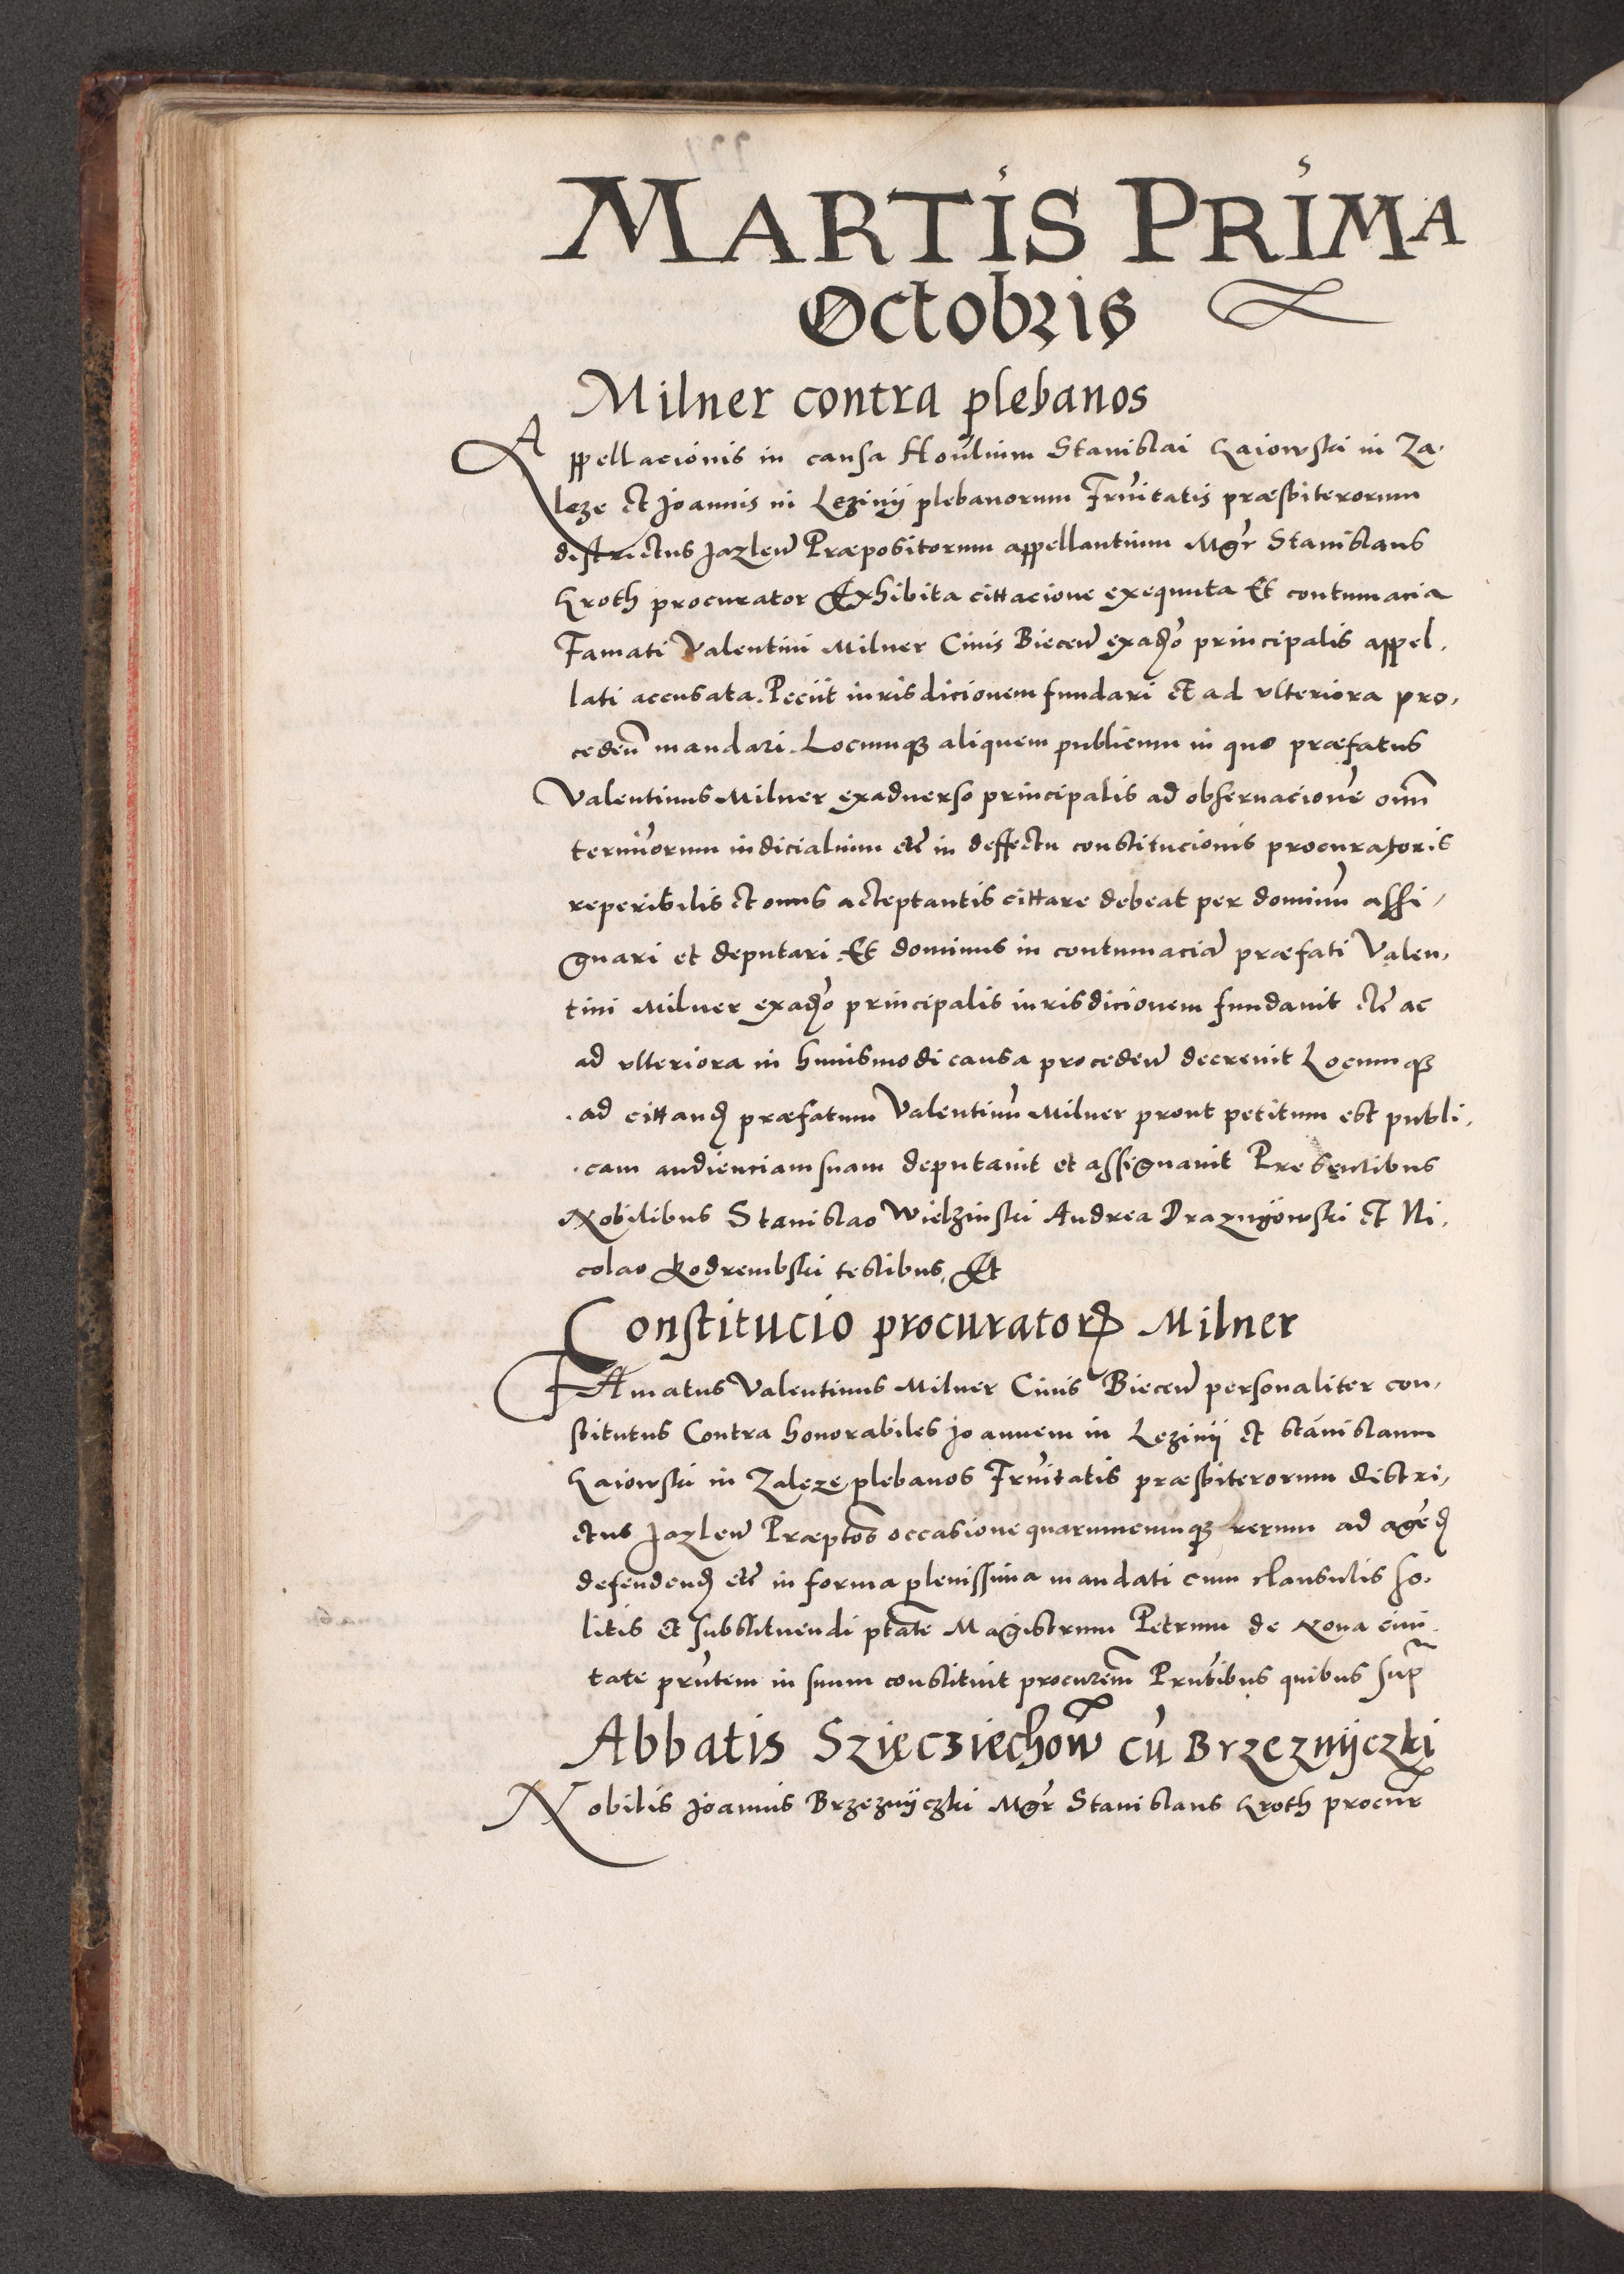 MARTIS PRIMA
Octobris
Milner contra plebanos
Appellacionis in causa Hon̄lium Stanislai Gaiowski in Za-
leze et Joannis in Leziny plebanorum Frn̄itatis præsbiterorum
districtus Jazlen̄ Præpositorum appellantium Mgr̄ Stanislaus
Kroth procurator Exhibita cittacione exequuta Et contumacia
Famati Valentini Milner Ciuis Biecen̄ exad̄o principalis appel-
lati accusata. Peciit iurisdicionem fundari et ad vlteriora pro-
ceden̄ mandari. Locumqz aliquem publicum in quo præfatus
Valentinus Milner exaduerso principalis ad obseruacionē omn̄
termīorum iudicialium etc̄ in deffectu constitucionis procuratoris
reperibilis et onus acceptantis cittare debeat per dominū assi-
gnari et deputari. Et dominus in contumaciā præfati Valen-
tini Milner exad̄o principalis iurisdicionem fundauit etc̄ ac
ad vlteriora in huiusmodi causa proceden̄ decreuit Locumqz
ad cittand præfatum Valentinū Milner prout petitum est publi-
cam audienciam suam deputauit et assignauit Presentibus
Nobilibus Stanislao Wielzinski Andrea Draznyowski et Ni-
colao Kodrembski testibus, Et
Constitucio procuratoris Milner
FAmatus Valentinus Milner Ciuis Biecen̄ personaliter con-
stitutus Contra honorabiles Joannem in Leziny et stanislaum
Gaiowski in Zaleze plebanos Frn̄itatis præsbiterorum distri-
ctus Jazlen̄ Præptos̄ occasione quarumcumqz rerum ad agēd
defendend etc̄ in forma plenissima mandati cum clausulis so-
litis et substituendi ptātē Magistrum Petrum de Noua ciui-
tate prn̄tem in suum constituit procur̄em Prn̄tibus quibus sup̄
Abbatis Szięcziechow̄ cū Brzeznyczki
Nobilis Joannis Brzeznyczki Mgr̄ Stanislaus Kroth procur̄